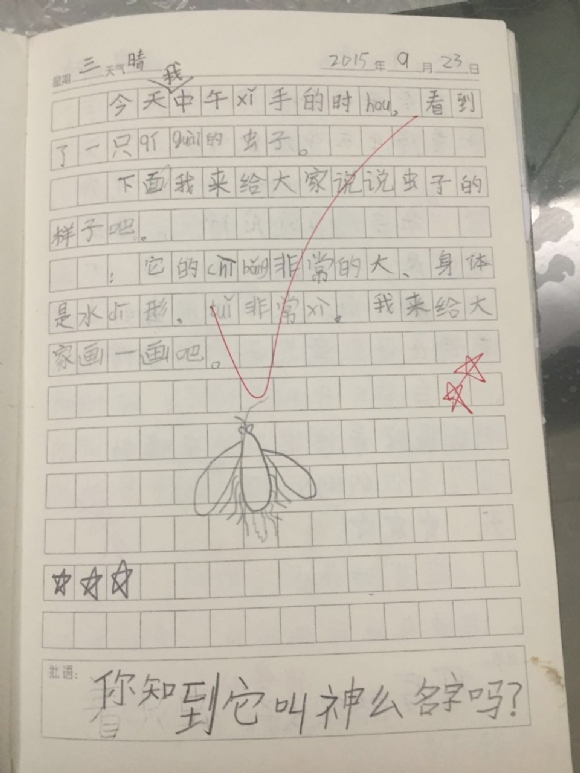 星期 三 天气 晴 2015 年 9 月 23 日
我
今天中午xǐ手的时hou。看到
了一只qí guài的虫子。
下面我来给大家说说虫子的
样子吧。
:它的chì bǎng非常的大、身体
是水dī形、tuǐ非常xì。我来给大
家画一画吧。
批语:
你知到它叫神么名字吗?